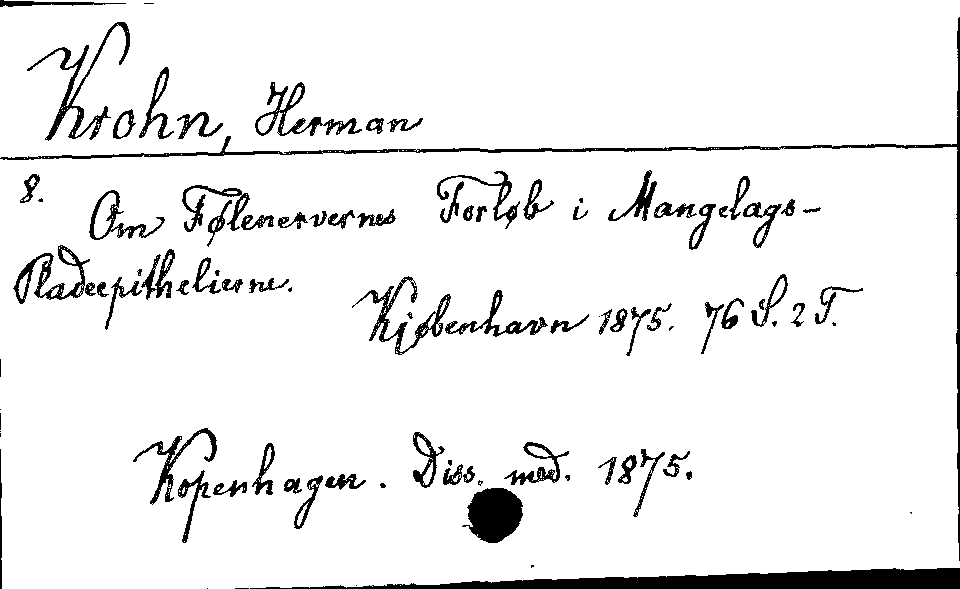 Krohn, Herman
8.
Om Følenervernes Forløb i Mangelags-
Pladeepithelierne.
Kjøbenhavn 1875. 76 S. 2 T.
Kopenhagen. Diss. med. 1875.